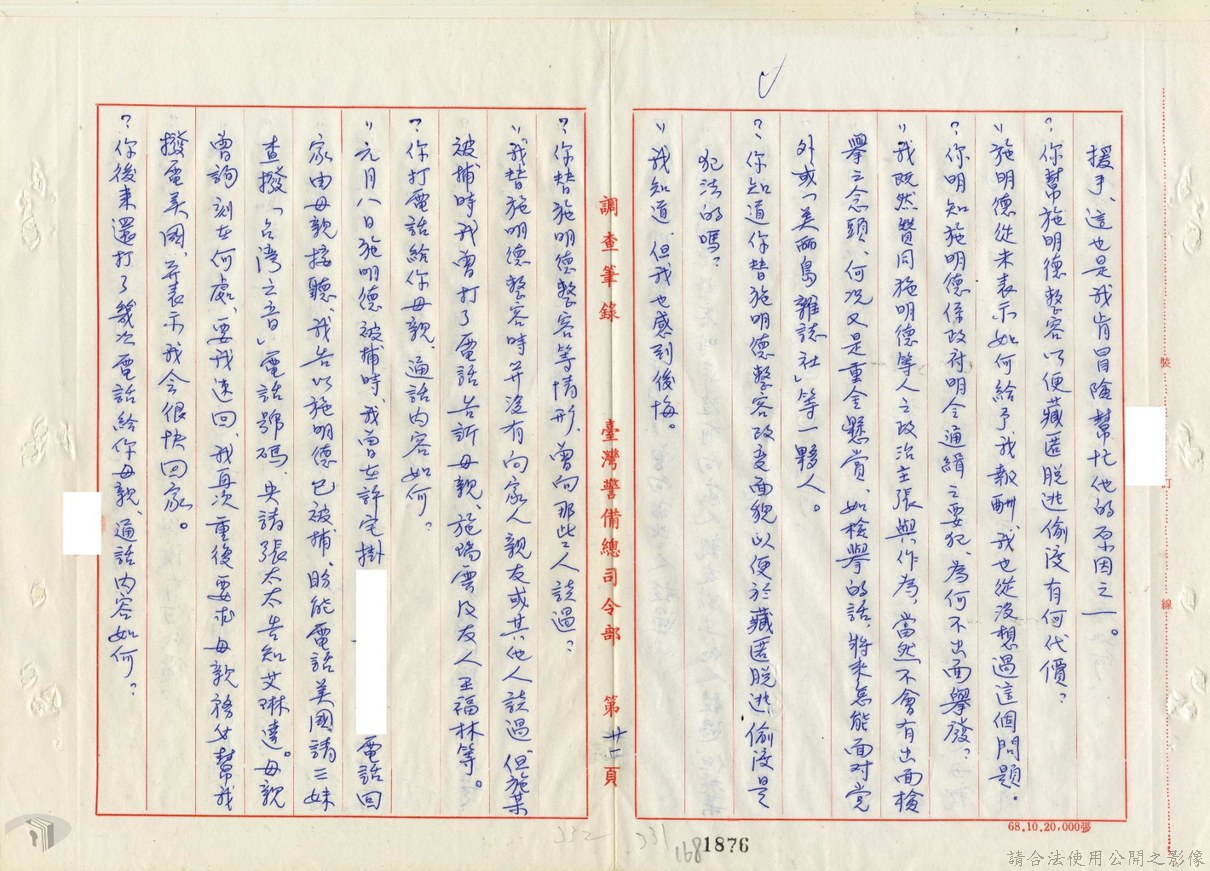 援手、這也是我肯冒險幫忙他的原因之一。
?你幫施明德整容以便藏匿脫逃偷渡有何代價?
〃施明德從未表示如何給予我報酬、我也從沒想過這個問題。
?你明知施明德係政府明令通緝之要犯、為何不出面舉發?
〃我既然贊同施明德等人之政治主張與作為、當然不會有出面檢
舉之念頭、何況又是重金懸賞、如檢舉的話、將來怎能面對党
外或「美丽島雜誌社」等一夥人。
?你知道你替施明德整容改变面貌以便於藏匿脫逃偷渡是
犯法的嗎?
〃我知道、但我也感到後悔。
調查筆錄
臺灣警備總司令部
第廿一頁
?你替施明德整容等情形、曾向那些人談過?
〃我替施明德整容時并沒有向家人親友或其他人談過、但施某
被捕時我曾打了電話告訴母親、施瑞雲及友人王福林等。
?你打電話給你母親、通話内容如何?
〃元月八日施明德被捕時、我曾在許宅掛 電話回
家由母親接聽、我告以施明德已被捕、盼能電話美國請三妹
查撥「台湾之音」電話號碼、央請張太太告知艾琳達。母親
曾詢刻在何處、要我速回、我再次重復要求母親務必幫我
撥電美國、并表示我会很快回家。
?你後来還打了幾次電話給你母親、通話内容如何?
68.10.20,000張
裝
訂
線
332
331
168
1876
請合法使用公開之影像